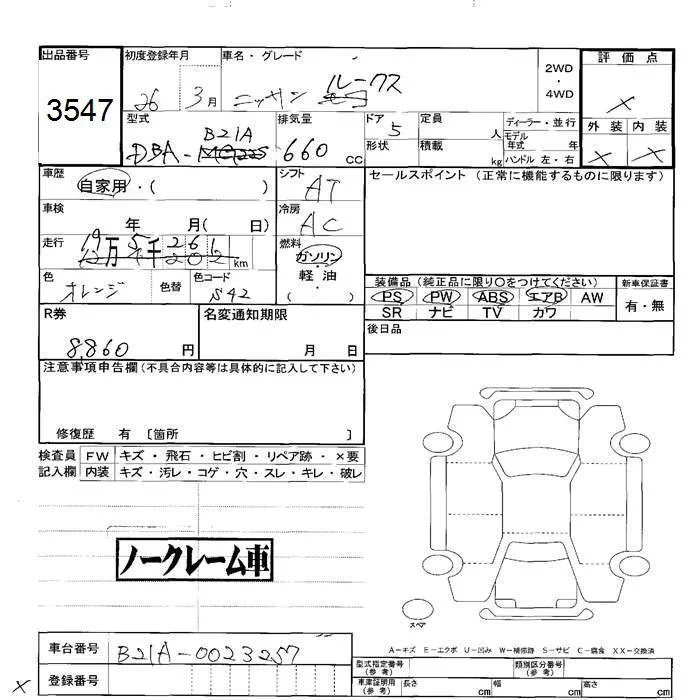 出品番号
3547
初度登録年月
26 3 月
車名・グレード
ニッサン ルークス
2WD
・
4WD
評価点
×
外装 内装
× ×
型式
B21A
DBA-
排気量
660 cc
ドア
5
形状
定員
人
積載
kg
ディーラー・並行
モデル年式 年
ハンドル 左・右
車歴
自家用・( )
シフト
AT
セールスポイント (正常に機能するものに限ります)
車検
年 月( 日)
冷房
AC
走行
万 千 261
km
燃料
ガソリン
・
軽油
( )
色
オレンジ
色替
色コード
S42
装備品 (純正品に限り○をつけてください)
PS PW ABS エアB AW
SR ナビ TV カワ
新車保証書
有・無
R券
8,860 円
名変通知期限
月 日
後日品
注意事項申告欄(不具合内容等は具体的に記入して下さい)
修復歴 有 〔箇所 〕
検査員記入欄
FW キズ・飛石・ヒビ割・リペア跡・×要
内装 キズ・汚レ・コゲ・穴・スレ・キレ・破レ
ノークレーム車
スペア
A-キズ E-エクボ U-凹み W-補修跡 S-サビ C-腐食 XX-交換済
車台番号
B21A-0023257
登録番号
×
型式指定番号
(参考)
類別区分番号
(参考)
車庫証明用
(参考)
長さ cm
幅 cm
高さ cm